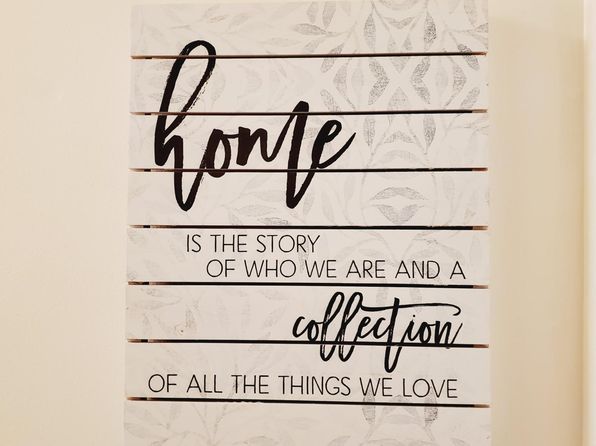 home
IS THE STORY
OF WHO WE ARE AND A
collection
OF ALL THE THINGS WE LOVE